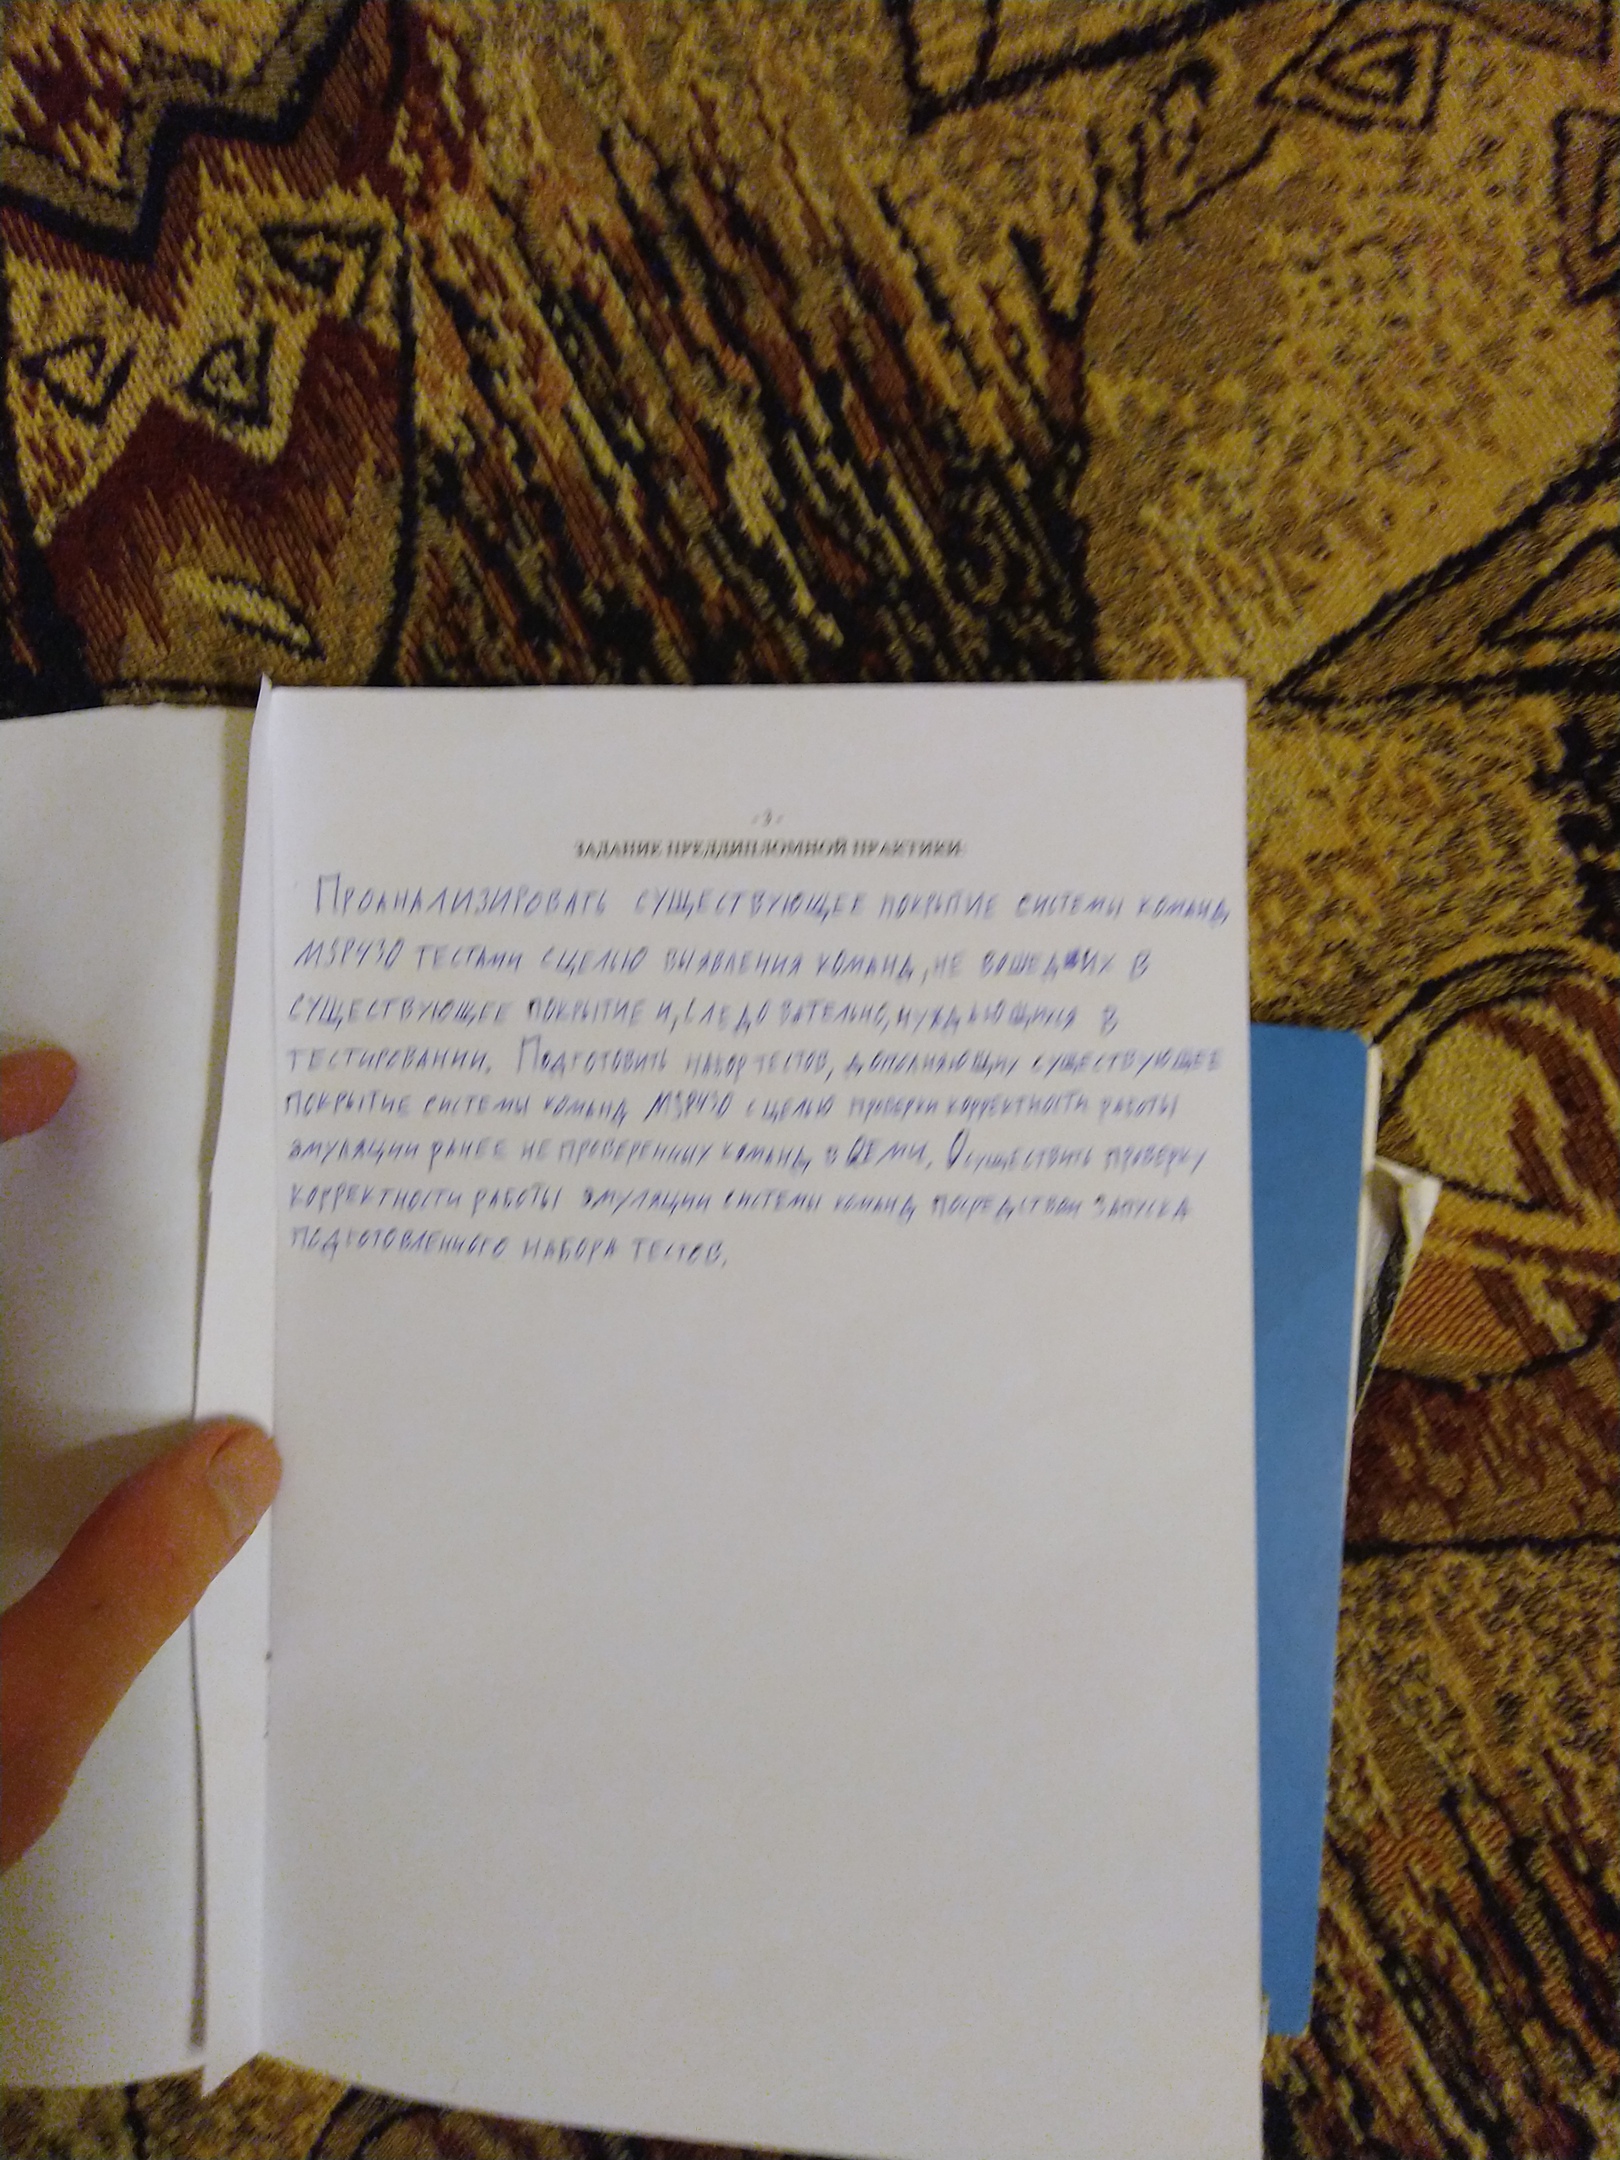 - 3 -
ЗАДАНИЕ ПРЕДДИПЛОМНОЙ ПРАКТИКИ
Проанализировать существующее покрытие системы команд
MSP430 тестами с целью выявления команд, не вошедших в
существующее покрытие и, следовательно, нуждающихся в
тестировании. Подготовить набор тестов, дополняющих существующее
покрытие системы команд MSP430 с целью проверки корректности работы
эмуляции ранее не проверенных команд в QEMU. Осуществить проверку
корректности работы эмуляции системы команд посредством запуска
подготовленного набора тестов.